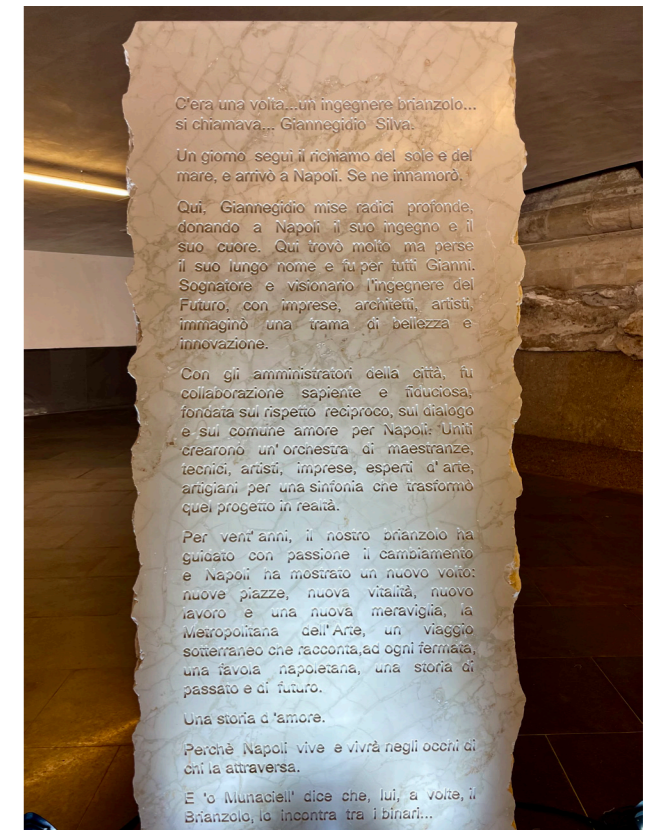 C'era una volta...un ingegnere brianzolo...
si chiamava... Giannegidio Silva.
Un giorno seguì il richiamo del sole e del
mare, e arrivò a Napoli. Se ne innamorò.
Qui, Giannegidio mise radici profonde,
donando a Napoli il suo ingegno e il
suo cuore. Qui trovò molto ma perse
il suo lungo nome e fu per tutti Gianni.
Sognatore e visionario l'ingegnere del
Futuro, con imprese, architetti, artisti,
immaginò una trama di bellezza e
innovazione.
Con gli amministratori della città, fu
collaborazione sapiente e fiduciosa,
fondata sul rispetto reciproco, sul dialogo
e sul comune amore per Napoli. Uniti
crearono un'orchestra di maestranze,
tecnici, artisti, imprese, esperti d'arte,
artigiani per una sinfonia che trasformò
quel progetto in realtà.
Per vent'anni, il nostro brianzolo ha
guidato con passione il cambiamento
e Napoli ha mostrato un nuovo volto:
nuove piazze, nuova vitalità, nuovo
lavoro e una nuova meraviglia, la
Metropolitana dell'Arte, un viaggio
sotterraneo che racconta,ad ogni fermata,
una favola napoletana, una storia di
passato e di futuro.
Una storia d 'amore.
Perchè Napoli vive e vivrà negli occhi di
chi la attraversa.
E 'o Munaciell' dice che, lui, a volte, il
Brianzolo, lo incontra tra i binari...